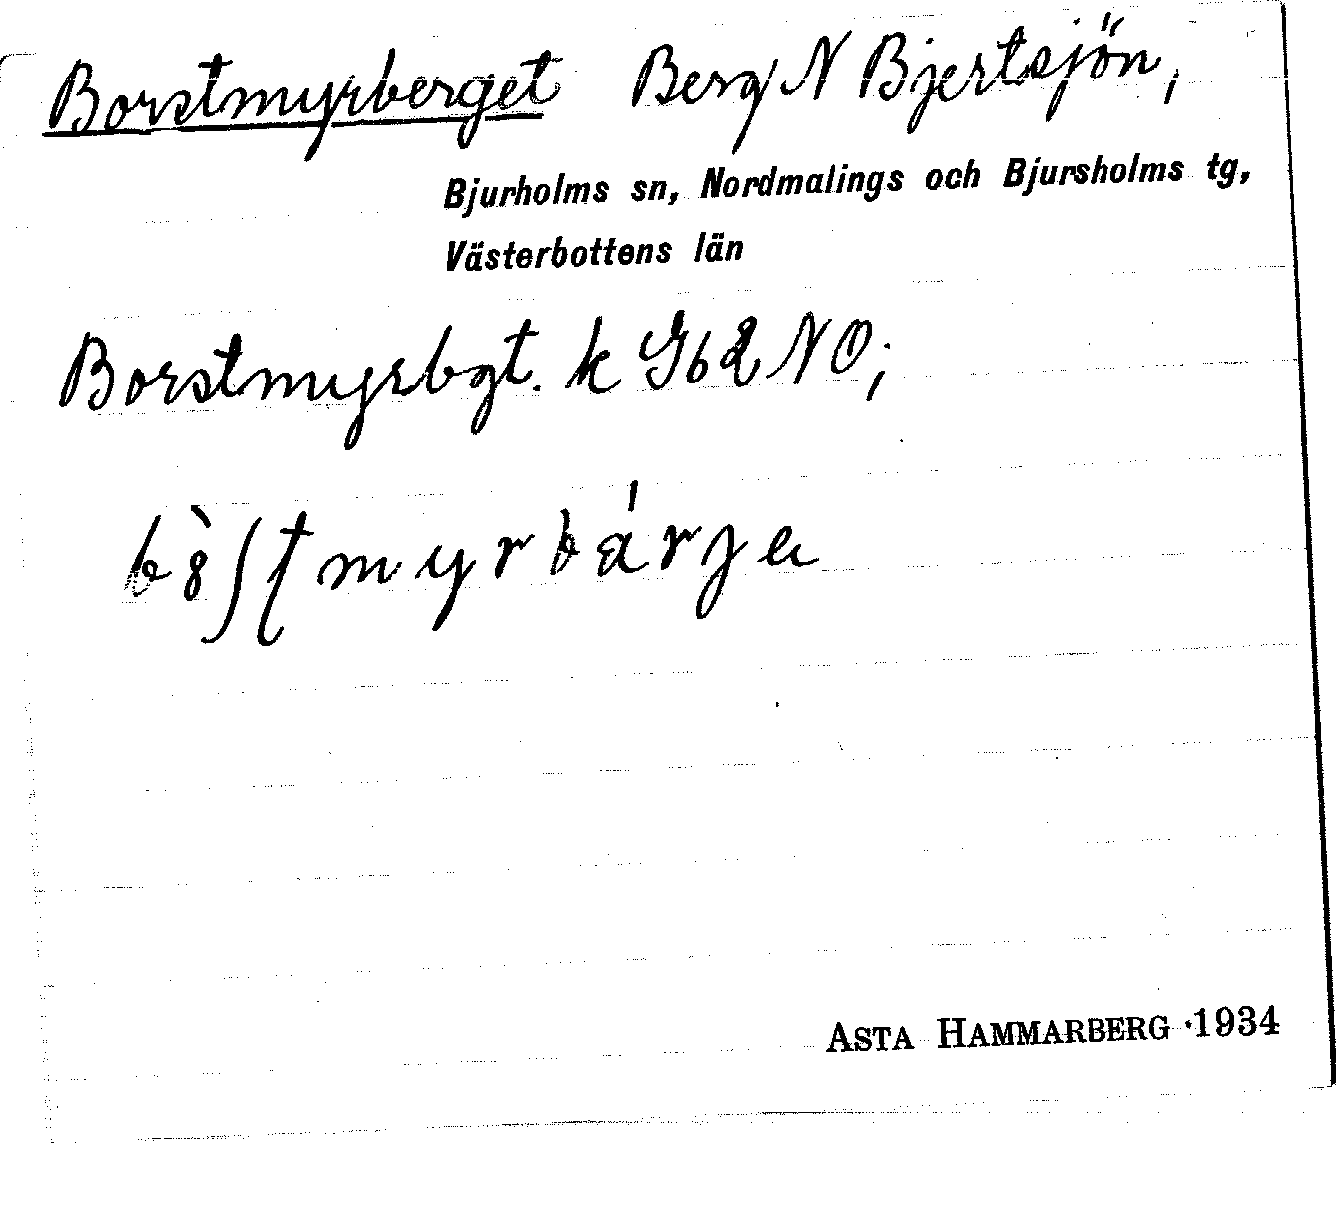 Borstmyrberget Berg N Bjertsjön,
Bjurholms sn, Nordmalings och Bjursholms tg,
Västerbottens län
Borstmyrbgt. k Gbl NO;
ASTA HAMMARBERG 1934